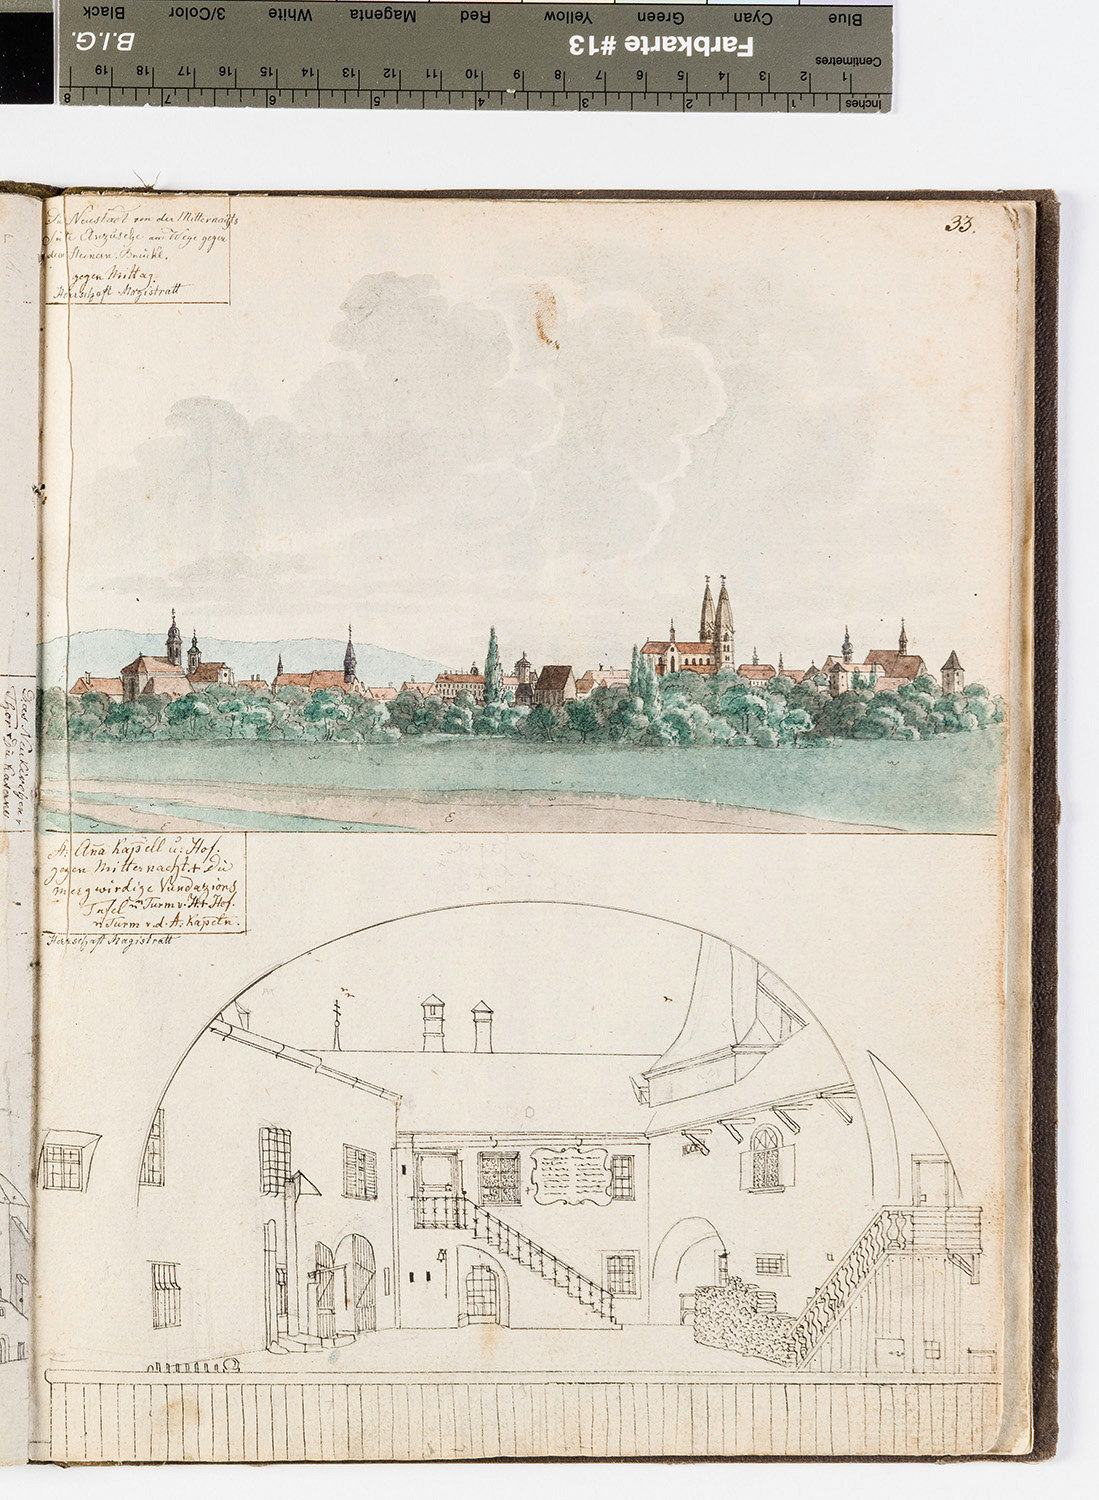 Blue Cyan Green Yellow Red Magenta White 3/Color Black
Farbkarte #13
B.I.G.
Centimetres
1 2 3 4 5 6 7 8 9 10 11 12 13 14 15 16 17 18 19
1 2 3 4 5 6 7 8
Inches
33.
Neustadt von der Mitternachts
am Wege gegen
Steinern. Brücke.
gegen Mittag
Herrschaft Magistratt
Neukirchner
Thor
A: Aña Kapell u: Hof.
gegen Mitternacht. + Die
mergwirdige Vundazions
Tafel Turm v. Hof.
Turm v. d. A: Kapeln.
Herrschaft Magistratt